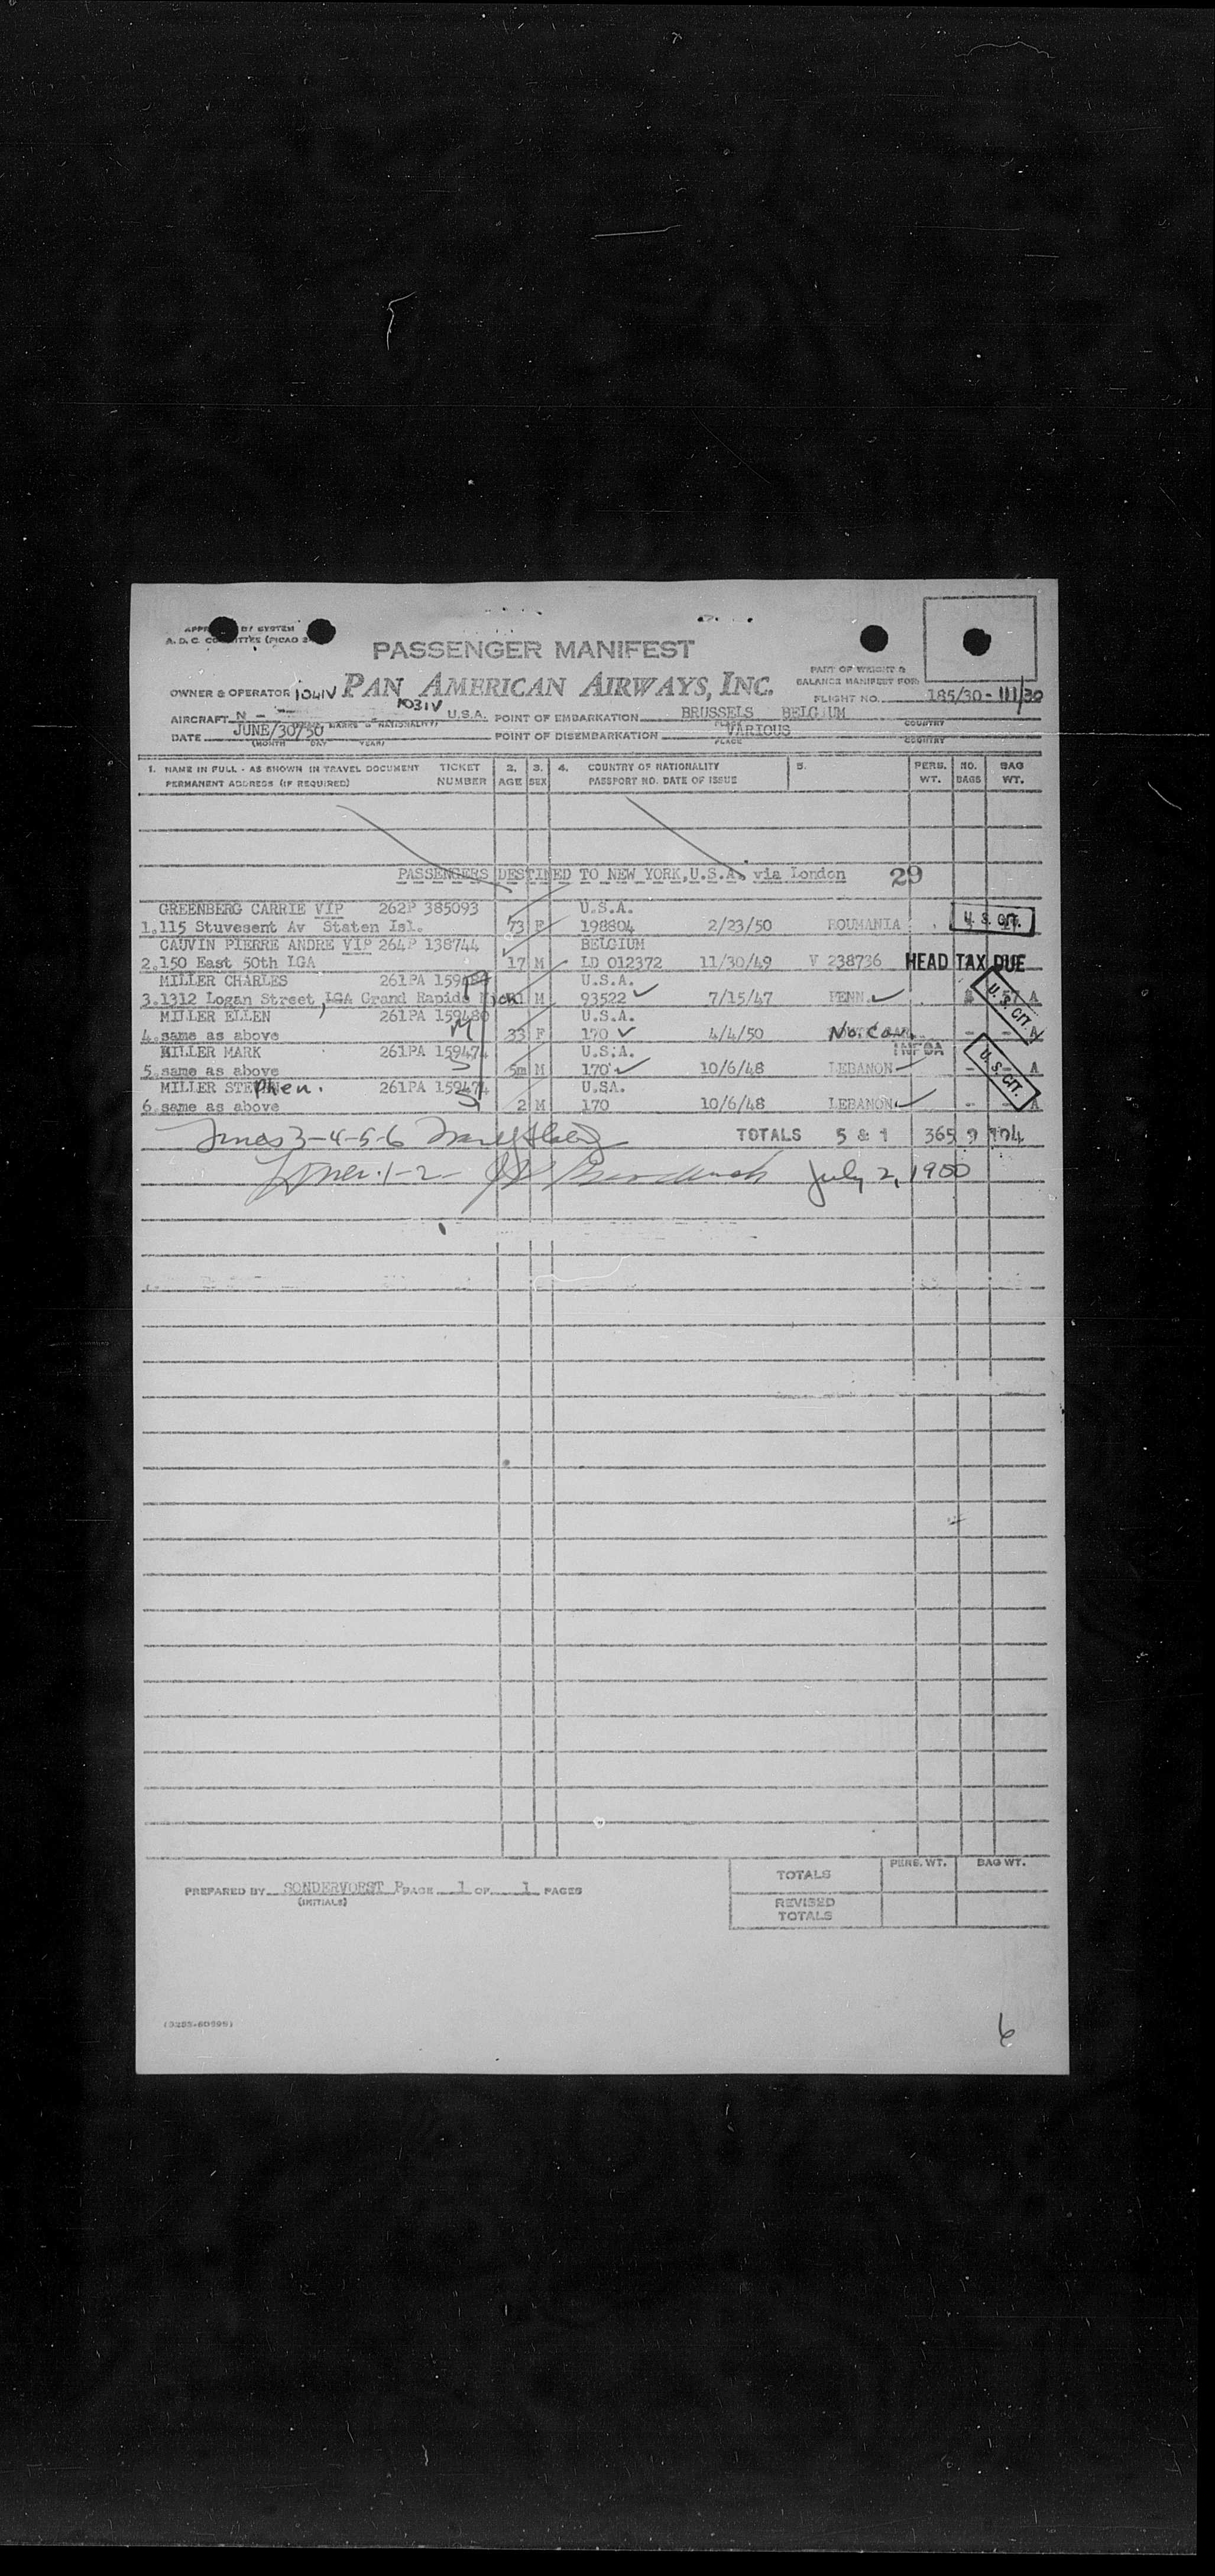 APPR BY SYSTEM
A.D.C. COMMITTEE (PICAO 2
PASSENGER MANIFEST
PART OF WEIGHT &
BALANCE MANIFEST FOR:
OWNER & OPERATOR 1041V PAN AMERICAN AIRWAYS, INC.
FLIGHT NO. 185/30 - 111/30
1031V
AIRCRAFT N - U.S.A. POINT OF EMBARKATION BRUSSELS BELGIUM
(MARKS & NATIONALITY) PLACE COUNTRY
DATE JUNE/30/50 POINT OF DISEMBARKATION VARIOUS
(MONTH DAY YEAR) PLACE COUNTRY
1. NAME IN FULL - AS SHOWN IN TRAVEL DOCUMENT TICKET 2. 3. 4. COUNTRY OF NATIONALITY 5. PERS. NO. BAG
PERMANENT ADDRESS (IF REQUIRED) NUMBER AGE SEX PASSPORT NO. DATE OF ISSUE WT. BAGS WT.
PASSENGERS DESTINED TO NEW YORK, U.S.A. via London 29
GREENBERG CARRIE VIP 262P 385093 U.S.A.
1. 115 Stuvesent Av Staten Isl. 73 F 198804 2/23/50 ROUMANIA U. S. CIT.
CAUVIN PIERRE ANDRE VIP 264P 138744 BELGIUM
2. 150 East 50th LGA 17 M LD 012372 11/30/49 V 238736 HEAD TAX DUE
MILLER CHARLES 261PA U.S.A.
3. 1312 Logan Street, LGA Grand Rapids Mich M 93522 7/15/47 PENN. A
U. S. CIT.
MILLER ELLEN 261PA 159480 U.S.A.
4. same as above M 33 F 170 4/4/50 No. Car. - - A
MILLER MARK 261PA 159474 U.S.A.
5. same as above 5m M 170 10/6/48 LEBANON INFOA - A
U. S. CIT.
MILLER STEPhen. 261PA 159474 U.SA.
6. same as above 2 M 170 10/6/48 LEBANON - - A
Lines 3-4-5-6 TOTALS 5 & 1 365 9 104
Lines 1-2 July 2, 1950
TOTALS PERS. WT. BAG WT.
PREPARED BY SONDERVORST P PAGE 1 OF 1 PAGES
(INITIALS)
REVISED
TOTALS
6